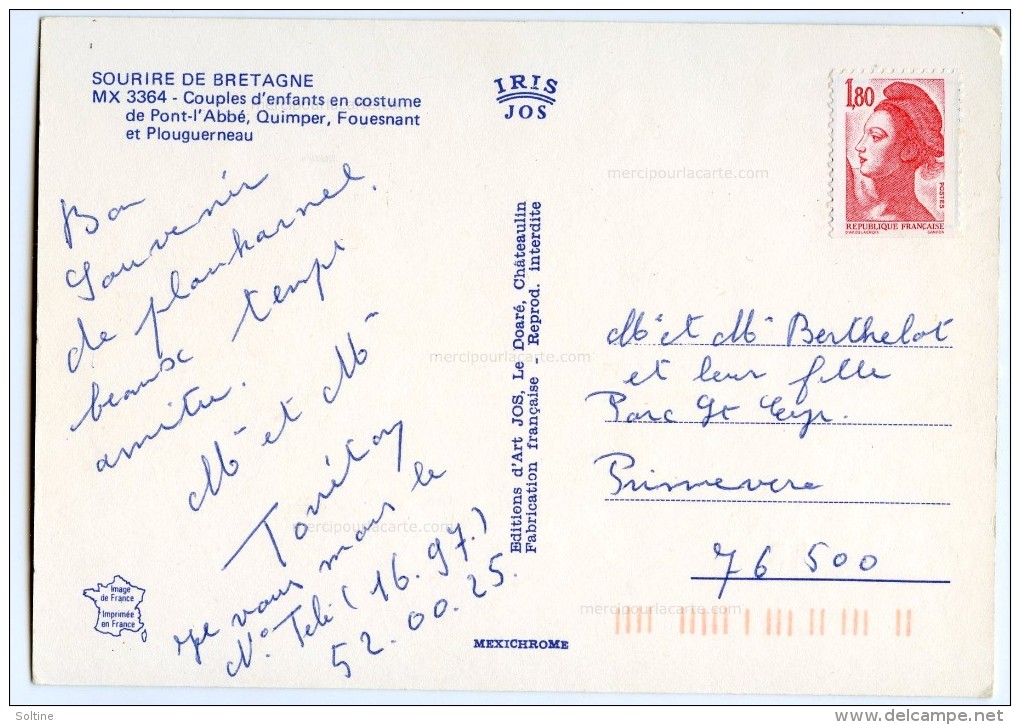 SOURIRE DE BRETAGNE
MX 3364 - Couples d'enfants en costume
de Pont-l'Abbé, Quimper, Fouesnant
et Plouguerneau
IRIS
JOS
1,80
POSTES
REPUBLIQUE FRANÇAISE
D'AP. DELACROIX GANDON
mercipourlacarte.com
Bon
Souvenir
de plouharnel.
beaux temps
amitié.
Mr et Me
je vous mais le
No Telé (16.97.)
52.00.25.
Editions d'Art JOS, Le Doaré, Châteaulin
Fabrication française - Reprod. interdite
Mr et Me Berthelot
et leur fille
Parc St Cyr.
Primevere
76 500
Image
de France
Imprimée
en France
MEXICHROME
mercipourlacarte.com
mercipourlacarte.com
mercipourlacarte.com
mercipourlacarte.com
Soltine
delcampe.net